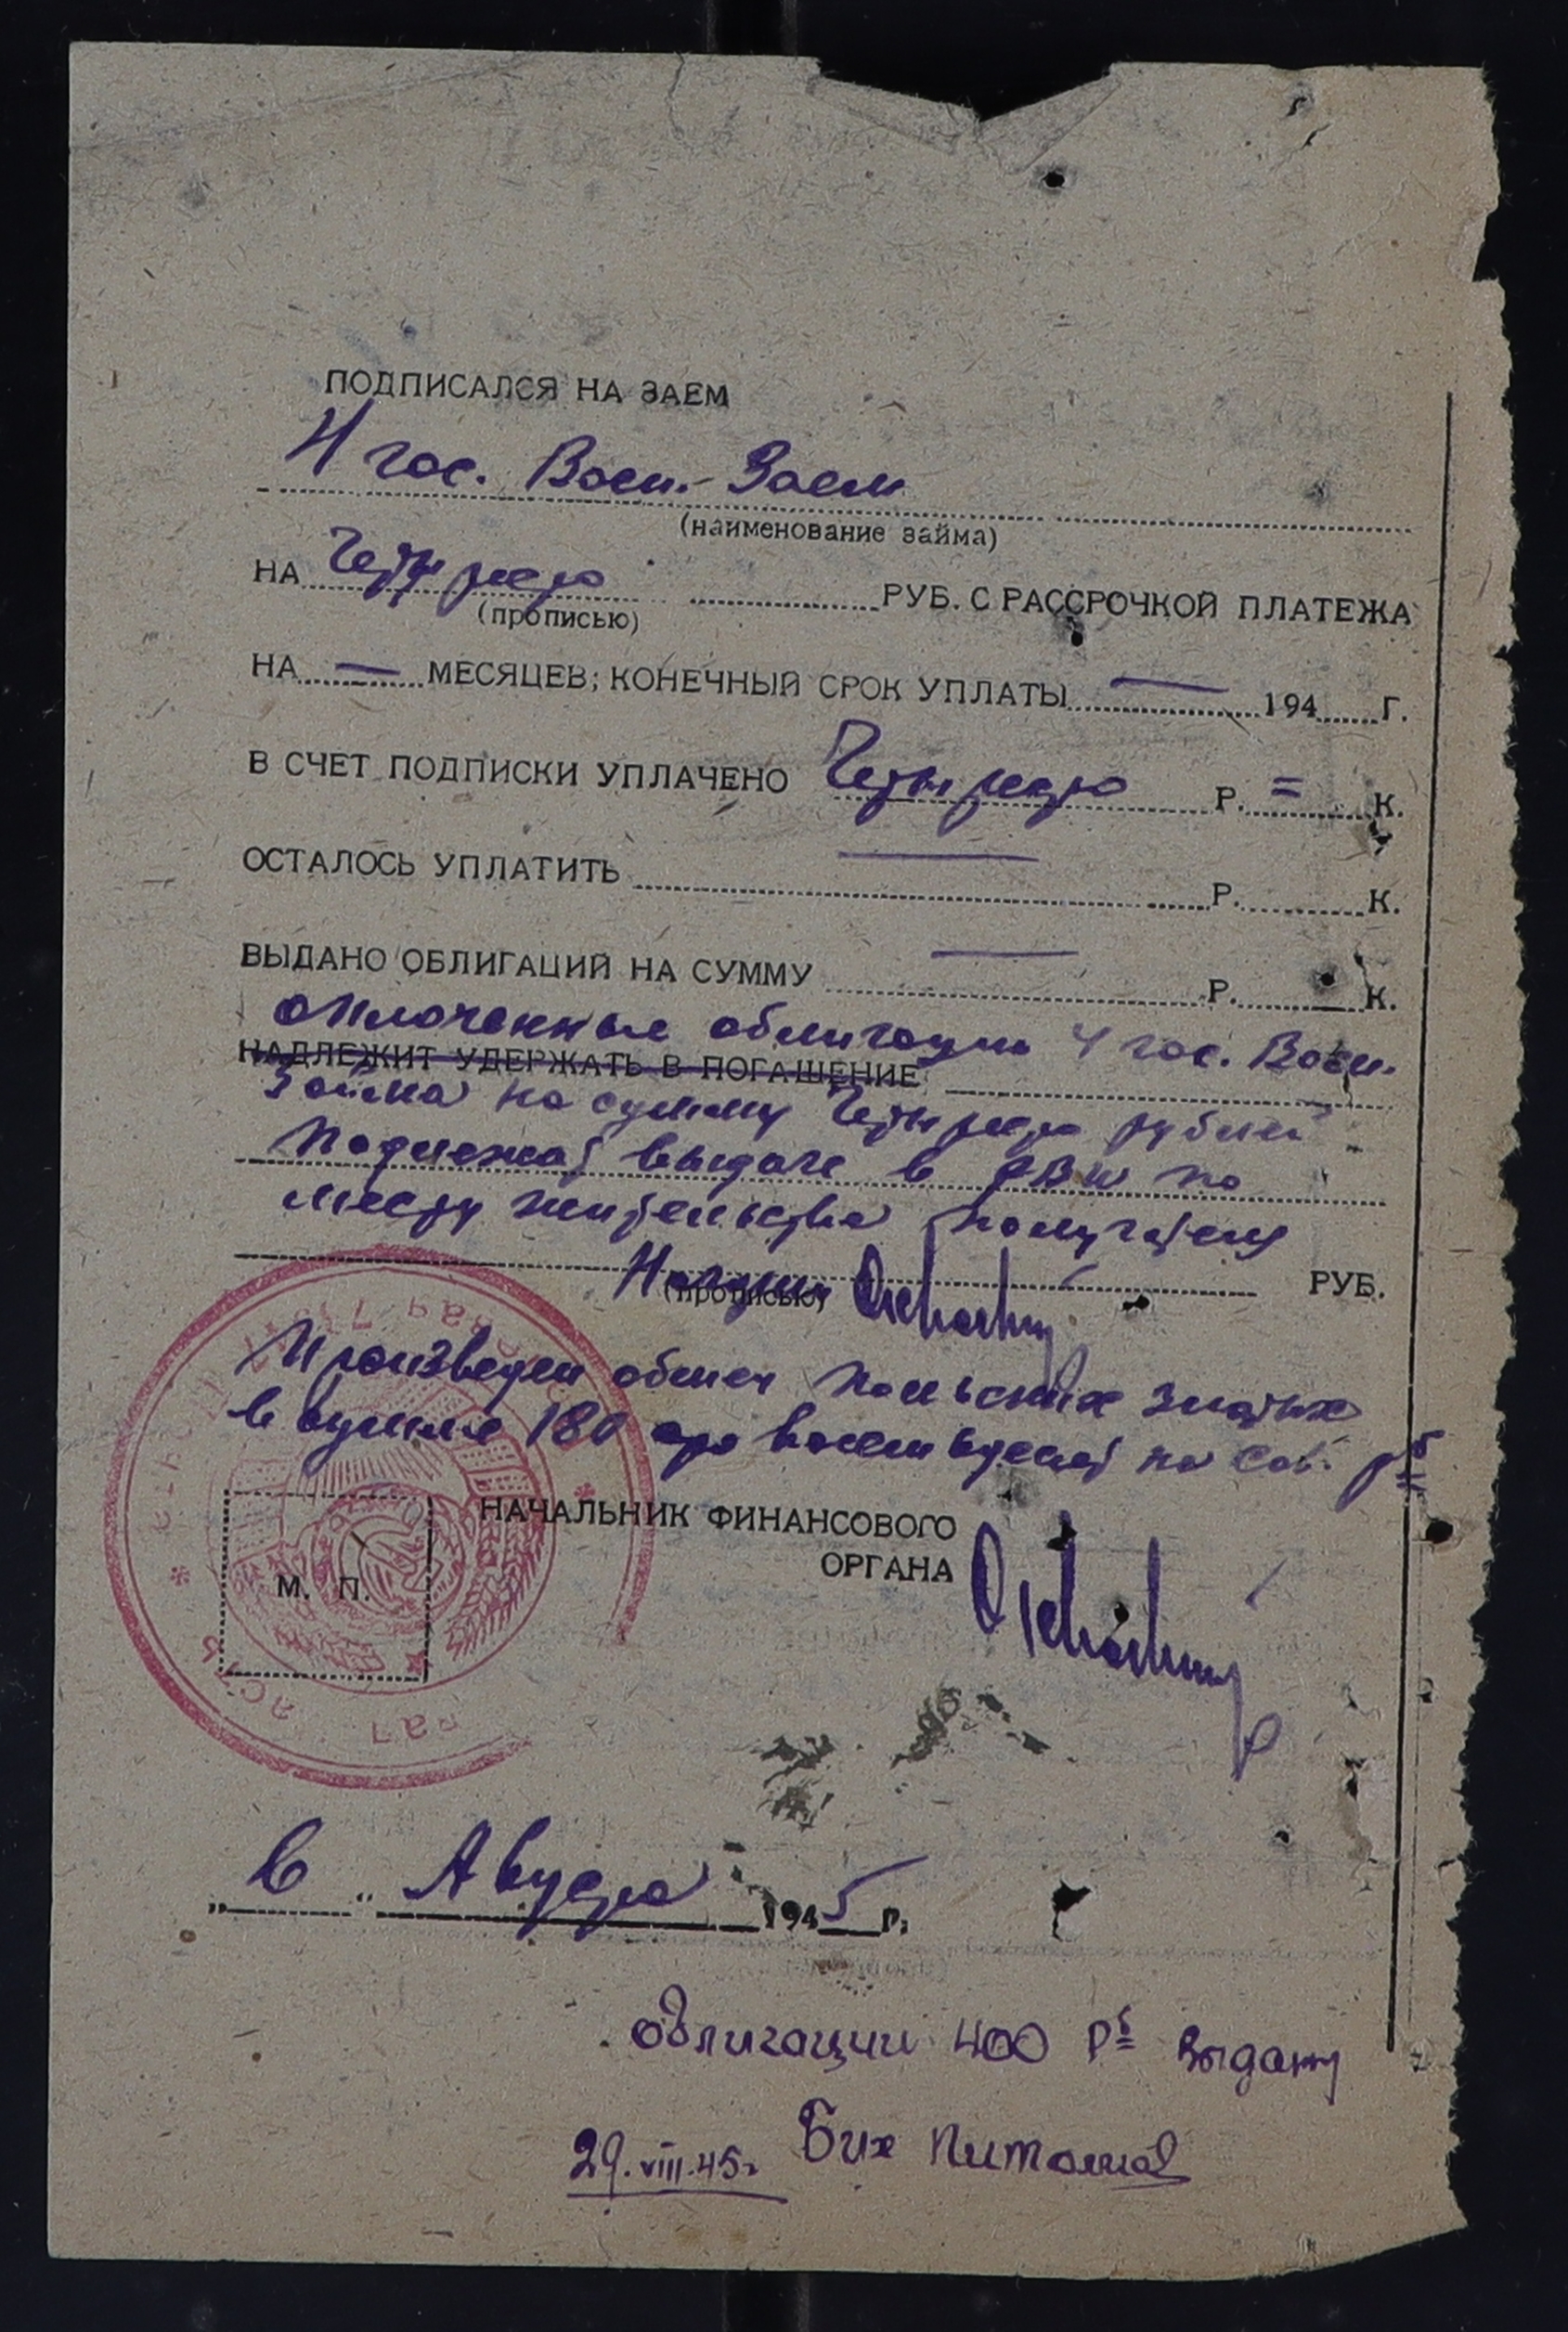 ПОДПИСАЛСЯ НА ЗАЕМ
4 гос. Воен. Заем
(наименование займа)
НА Четыреста РУБ. С РАССРОЧКОЙ ПЛАТЕЖА
(прописью)
НА — МЕСЯЦЕВ; КОНЕЧНЫЙ СРОК УПЛАТЫ — 194 Г.
В СЧЕТ ПОДПИСКИ УПЛАЧЕНО Четыреста Р. = К.
ОСТАЛОСЬ УПЛАТИТЬ — Р. К.
ВЫДАНО ОБЛИГАЦИЙ НА СУММУ — Р. К.
оплоченные облигации 4 гос. Воен.
НАДЛЕЖИТ УДЕРЖАТЬ В ПОГАШЕНИЕ
Займа на сумму Четыреста рублей
Подлежат выдаче в РВК по
месту жительства получателя
РУБ.
(прописью)
Произведен обмен польских злотых
в сумме 180 сто восемьдесят на сов. рб
НАЧАЛЬНИК ФИНАНСОВОГО
ОРГАНА
М. П.
„ 6 " Августа 1945 г.
облигации 400 рб выдану
29.VIII.45г